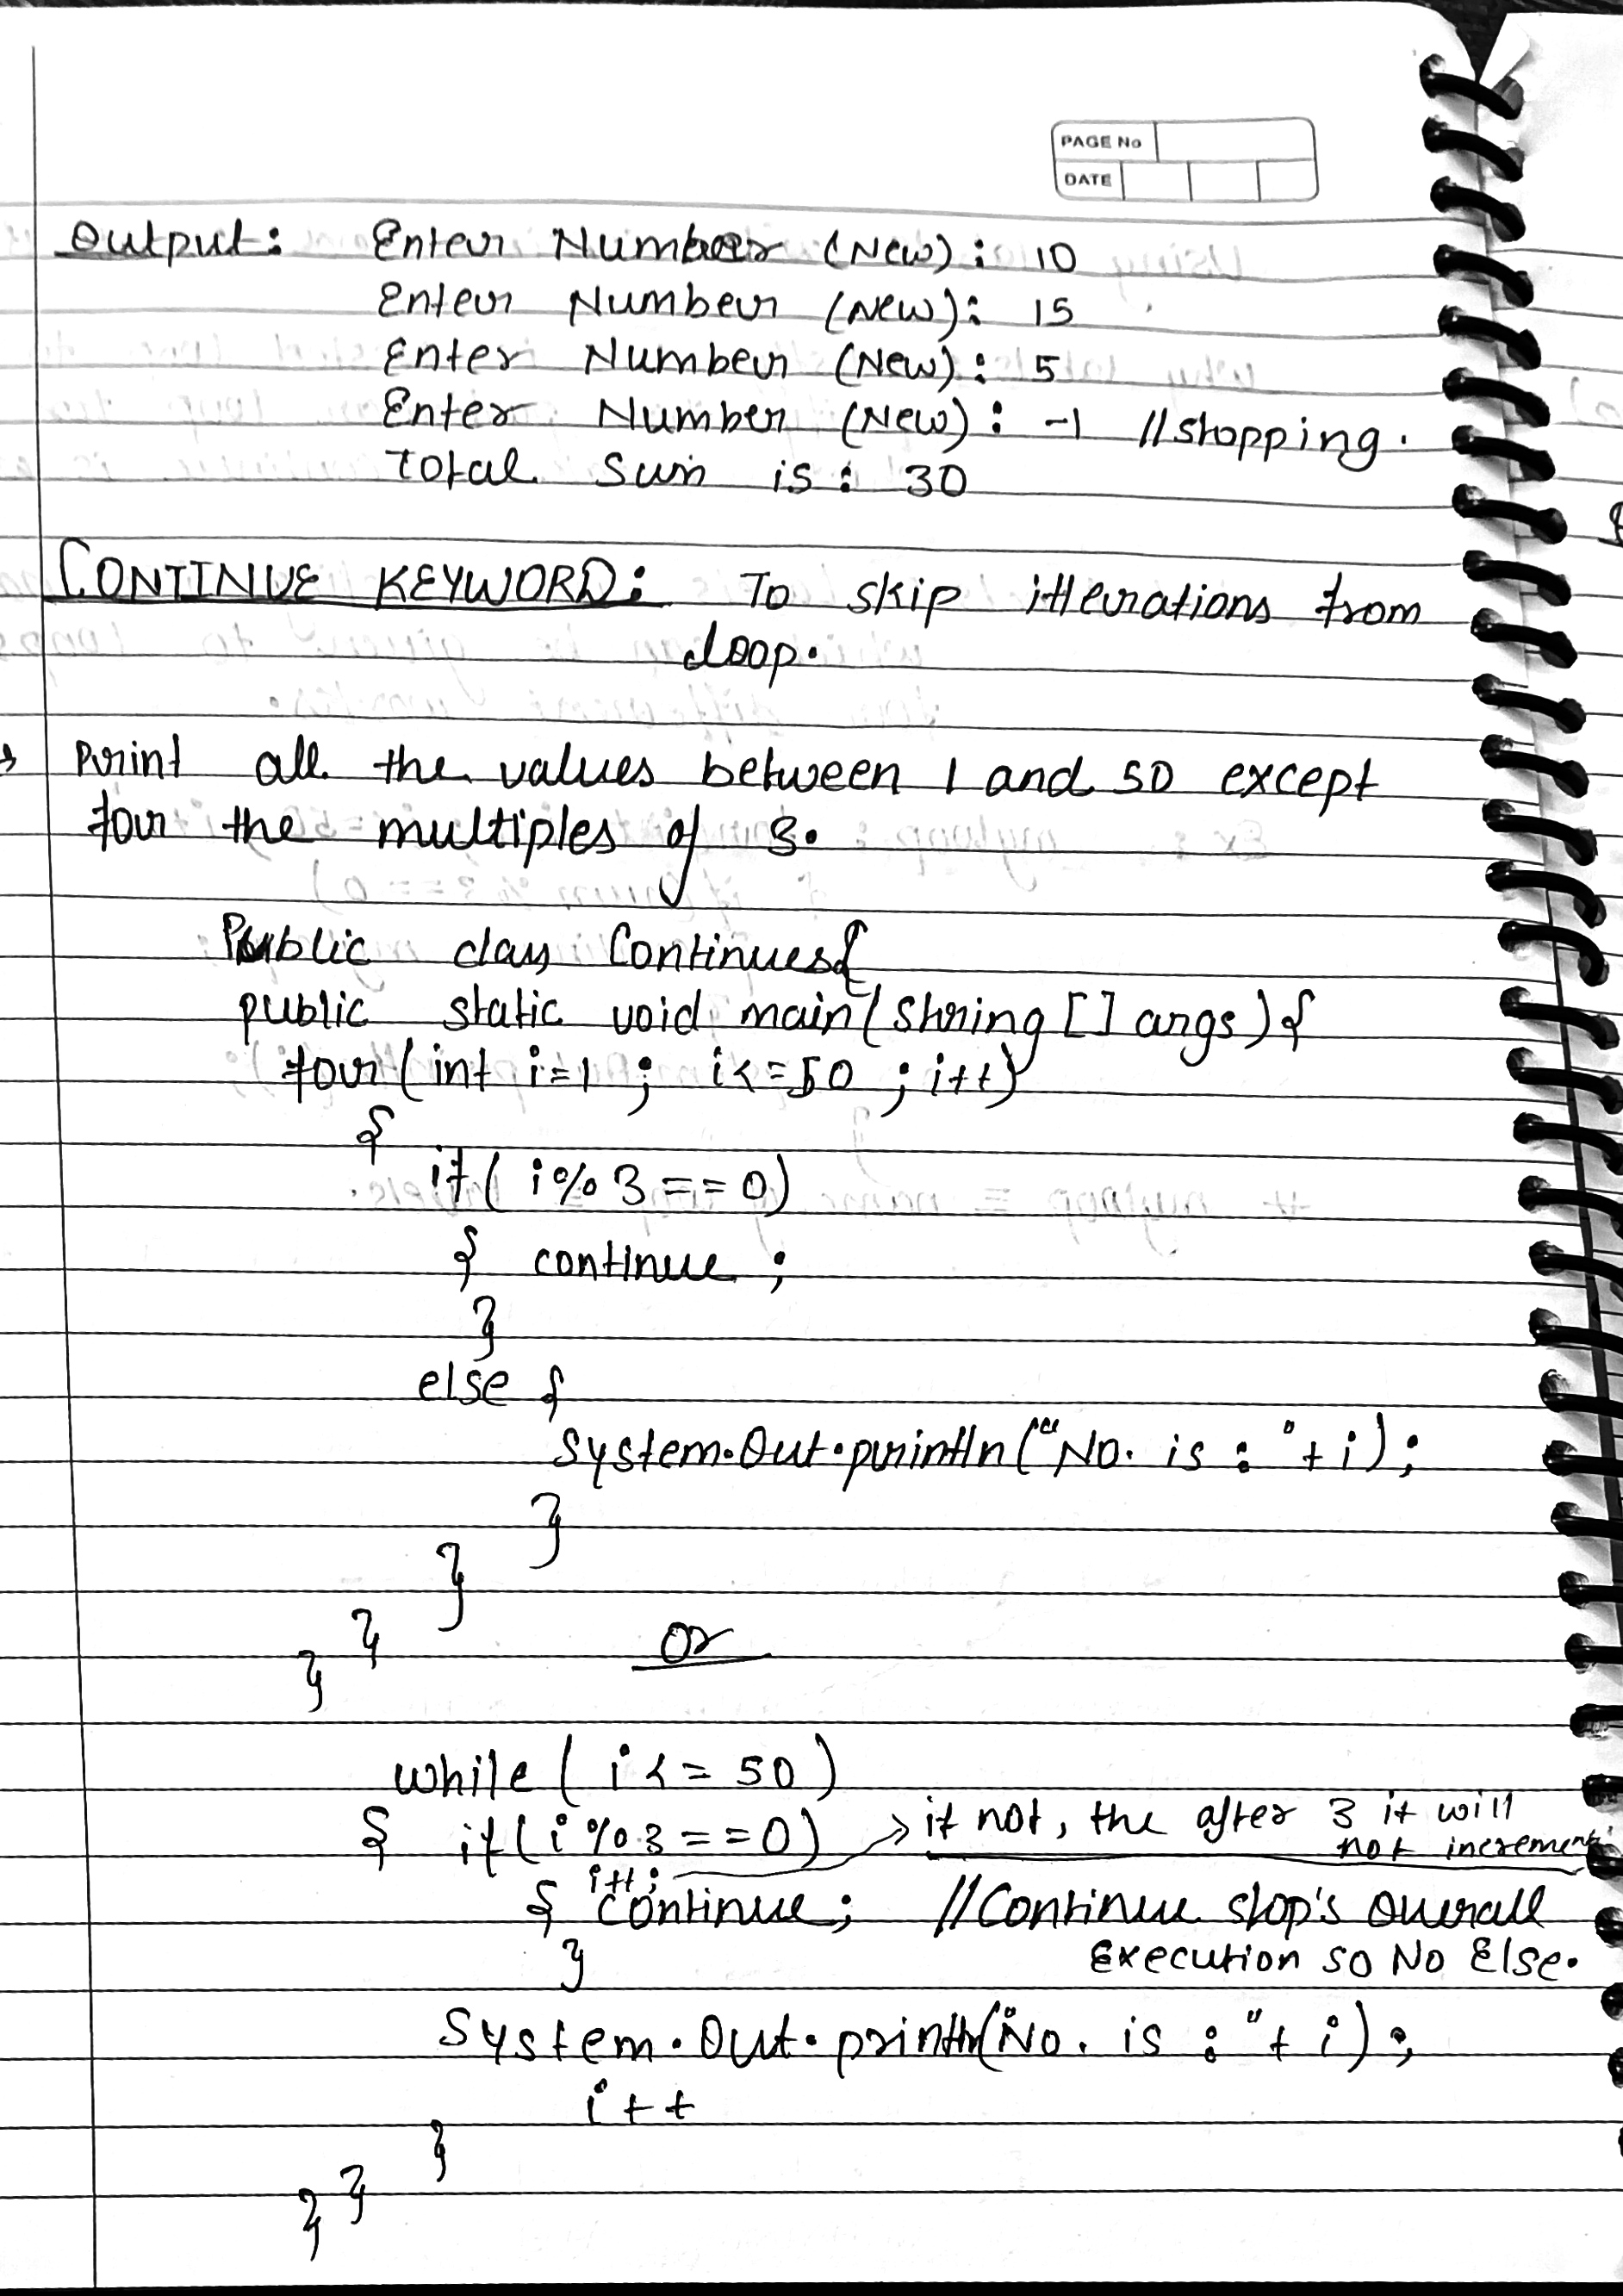 PAGE No
DATE
Output: Enter Number (New): 10
Enter Number (New): 15
Enter Number (New): 5
Enter Number (New): -1 //stopping.
Total Sum is: 30
CONTINUE KEYWORD: To skip itterations from
loop.
→ Print all the values between 1 and 50 except
for the multiples of 3.
Public class Continues{
public static void main(String [] args){
for(int i=1; i<=50; i++)
{
if( i%3==0)
{ continue;
}
else {
System.Out.println("No. is : "+i);
}
}
}
}
Or
while( i<=50)
{ if(i%3==0) → if not, the after 3 it will
not increment
i++;
{ continue; //Continue stop's Overall
Execution so No Else.
}
System.Out.println("No. is : "+ i);
i++
}
}
}